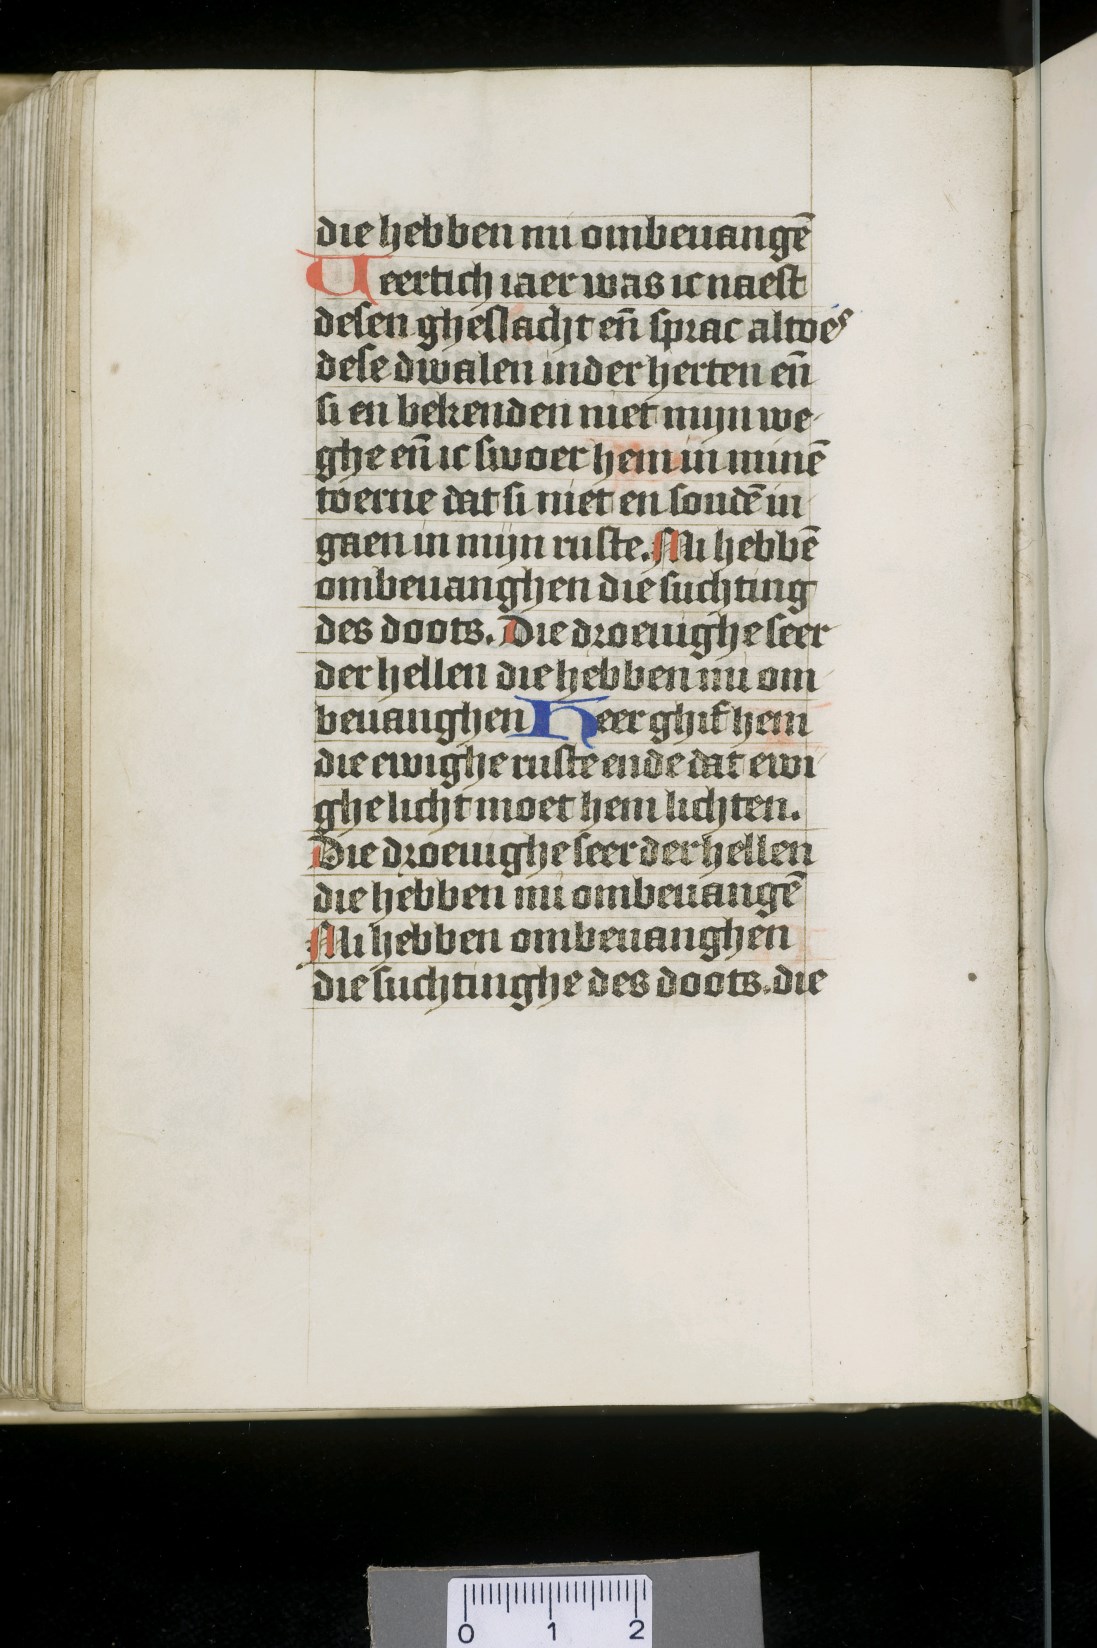 die hebben mi ombeuangē
Veertich iaer was ic naest
desen gheslacht en̄ sprac altoes
dese dwalen in der herten en̄
si en bekenden niet mijn we
ghe en̄ ic swoer hem in minē
toerne dat si niet en soudē in
gaen in mijn ruste. Mi hebbē
ombeuanghen die suchting
des doots. Die droeuighe seer
der hellen die hebben mi om
beuanghen Heer ghif hem
die ewighe ruste ende dat ewi
ghe licht moet hem lichten.
Die droeuighe seer der hellen
die hebben mi ombeuangē
Mi hebben ombeuanghen
die suchtinghe des doots. die
0 1 2